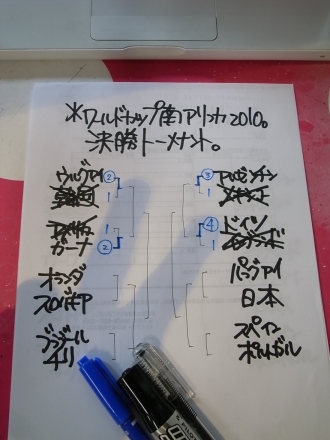 *ワールドカップ南アフリカ2010。
決勝トーメント。
ウルグアイ ② ③ アルゼンチン
韓国 1 1 メキシコ
アメリカ 1 ④ ドイツ
ガーナ ② 1 イングランド
オランダ パラグアイ
スロバキア 日本
ブラジル スペイン
チリ ポルトガル